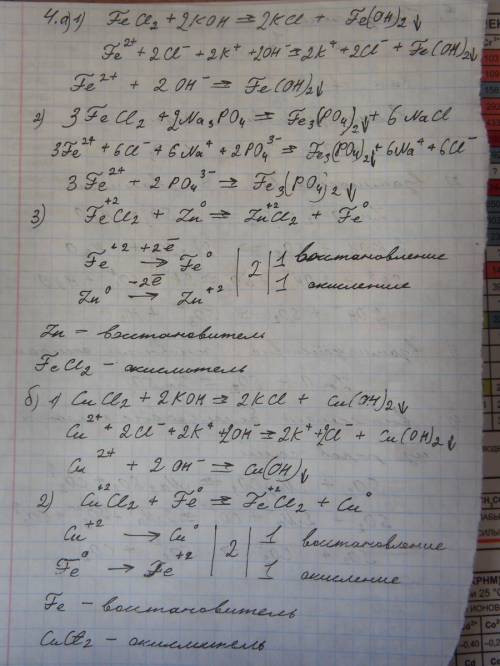 4.а) 1) FeCl₂ + 2KOH ⇒ 2KCl + Fe(OH)₂↓
Fe²⁺ + 2Cl⁻ + 2K⁺ + 2OH⁻ ⇒ 2K⁺ + 2Cl⁻ + Fe(OH)₂↓
Fe²⁺ + 2OH⁻ ⇒ Fe(OH)₂↓
2) 3FeCl₂ + 2Na₃PO₄ ⇒ Fe₃(PO₄)₂↓ + 6NaCl
3Fe²⁺ + 6Cl⁻ + 6Na⁺ + 2PO₄³⁻ ⇒ Fe₃(PO₄)₂↓ + 6Na⁺ + 6Cl⁻
3Fe²⁺ + 2PO₄³⁻ ⇒ Fe₃(PO₄)₂↓
3) Fe⁺²Cl₂ + Zn⁰ ⇒ Zn⁺²Cl₂ + Fe⁰
Fe⁺² +2ē → Fe⁰ | 2 | 1 восстановление
Zn⁰ −2ē → Zn⁺² | | 1 окисление
Zn – восстановитель
FeCl₂ – окислитель
б) 1) CuCl₂ + 2KOH ⇒ 2KCl + Cu(OH)₂↓
Cu²⁺ + 2Cl⁻ + 2K⁺ + 2OH⁻ ⇒ 2K⁺ + 2Cl⁻ + Cu(OH)₂↓
Cu²⁺ + 2OH⁻ ⇒ Cu(OH)↓
2) Cu⁺²Cl₂ + Fe⁰ ⇒ Fe⁺²Cl₂ + Cu⁰
Cu⁺² → Cu⁰ | 2 | 1 восстановление
Fe⁰ → Fe⁺² | | 1 окисление
Fe – восстановитель
CuCl₂ – окислитель